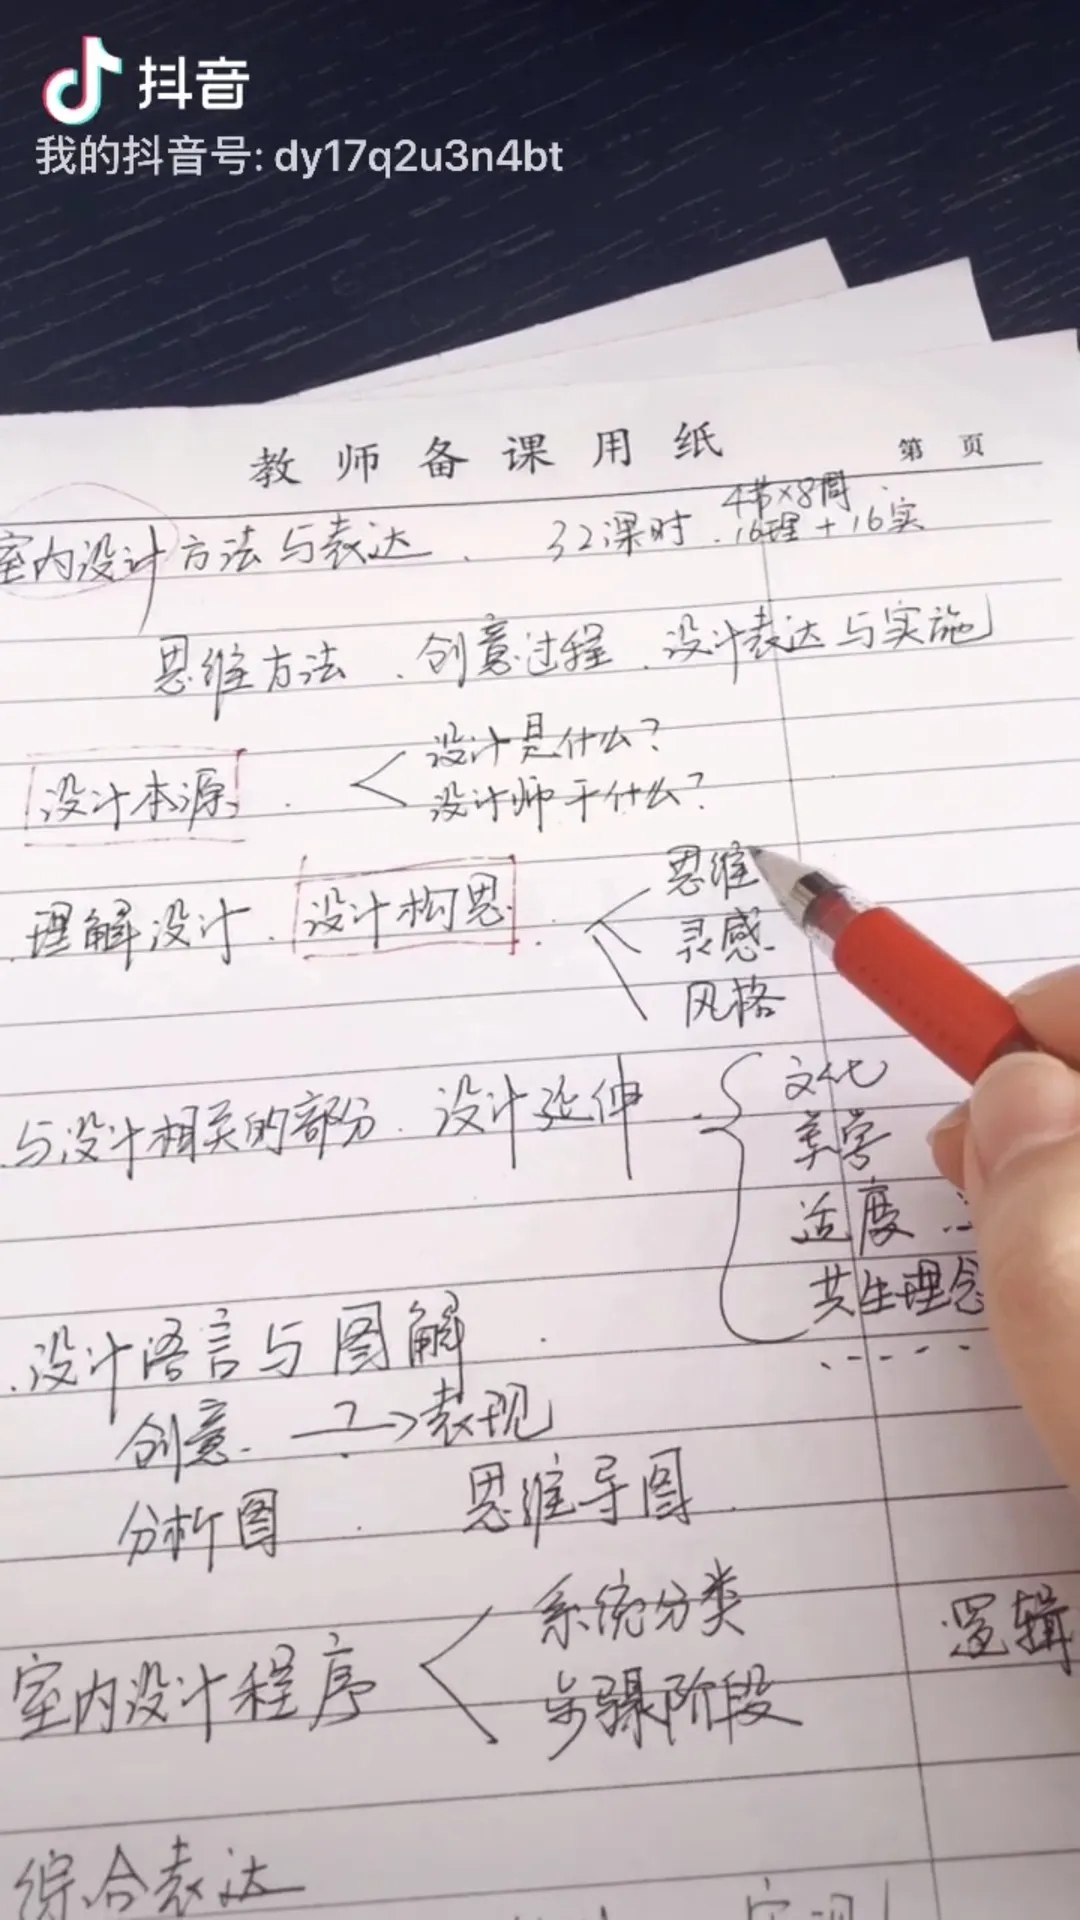 抖音
我的抖音号: dy17q2u3n4bt
教师备课用纸
第 页
室内设计方法与表达. 32课时. 4节×8周
16理+16实
思维方法.创意过程.设计表达与实施
设计本源. 设计是什么?
设计师干什么?
理解设计.设计构思. 思维
灵感
风格
与设计相关的部分.设计延伸 文化
美学
适度
共生理念
设计语言与图解
创意. → 表现
分析图 思维导图
室内设计程序 系统分类 逻辑
步骤阶段
综合表达